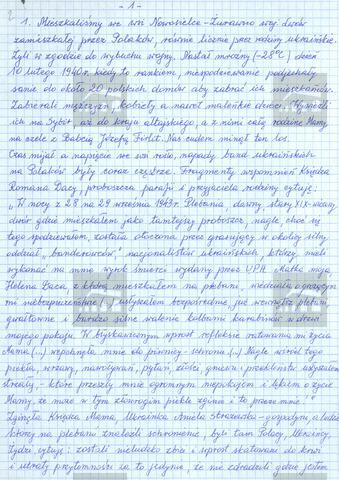 - 1 -
1. Mieszkaliśmy we wsi Nowosielce - Żurawno woj. lwów
zamieszkałej przez Polaków, równie licznie przez rodziny ukraińskie.
Żyli w zgodzie do wybuchu wojny. Nastał mroźny (-28°C) dzień
10 lutego 1940r. kiedy to rankiem, niespodziewanie podjechały
sanie do około 20 polskich domów aby zabrać ich mieszkańców.
Zabierali mężczyzn, kobiety a nawet maleńkie dzieci. Wywieźli
ich na Sybir, aż do kraju ałtajskiego, a z nimi całą rodzinę Mamy,
na czele z Babcią Józefą Firlet. Nas cudem minął ten los.
Czas mijał a napięcie we wsi rosło, napady band ukraińskich
na Polaków były coraz częstsze. Fragmenty wspomnień Księdza
Romana Dacy, proboszcza parafii i przyjaciela rodziny cytuję:
"W nocy z 28 na 29 września 1943r. Plebania, dawny, stary XIX-wieczny
dwór gdzie mieszkałem jako tamtejszy proboszcz, nagle, choć się
tego spodziewałem, została otoczona przez grasujący w okolicy silny
oddział "banderowców" nacjonalistów ukraińskich, którzy mieli
wykonać na mnie wyrok śmierci wydany przez UPA. Matka moja,
Helena Daca, z którą mieszkałem na plebani, wiedziała o grożącym
mi niebezpieczeństwie (...) usłyszałem bezpośrednio już wewnątrz plebani
gwałtowne i bardzo silne walenie kolbami karabinów w drzwi
mojego pokoju. W błyskawicznym wprost refleksie ratowania mi życia
Mama (...) wepchnęła mnie do piwnicy - schronu (...) Nagle wśród tego
piekła, wrzawy, nawoływań, pytań, złości, gniewu i przekleństw usłyszałem
strzały - które przeszyły mnie ogromnym niepokojem i lękiem o życie
Mamy, że może w tym straszliwym piekle zginie i to przeze mnie!"
Zginęła Księdza Mama, Ukrainka Aniela - gospodyni a ludzie
którzy na plebani znaleźli schronienie, byli tam Polacy, Ukraińcy,
Żydzi cytuję: zostali nieludzko zbici i wprost skatowani do krwi
i utraty przytomności za to jedynie, że nie zdradzili gdzie jestem